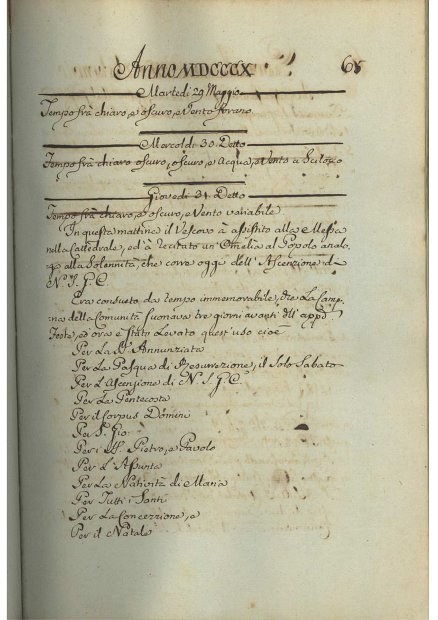 Anno MDCCCX 65
Martedì 29 Maggio
Tempo frà chiaro, e oscuro, e Vento forano
Mercoldì 30 Detto
Tempo frà chiaro oscuro, oscuro, e Acqua, e Vento a Sciloco
Giovedì 31 Detto
Tempo frà chiaro, e oscuro, e Vento variabile
In questa mattina il Vescovo à assistito alla Messa
nella Cattedrale, ed à recitato un' Omelia al Popolo analo,
ga alla Solennità, che corre oggi dell' Ascenzione di
N. S. G. C.
Era consueto da tempo immemorabile, che La Campa,
na della Comunità suonava tre giorni avanti
Feste, ed ora è stato Levato quest' uso cioè
Per La SS. Annunziata
Per La Pasqua di Resurrezione, il Solo Sabato
Per L'Ascenzione di N. S. G. C.
Per La Pentecoste
Per il Corpus Dómini
Per S. Gio
Per i SS. Pietro, e Pavolo
Per L' Assunta
Per La Natività di Maria
Per Tutti i Santi
Per La Concezzione, e
Per il Natale